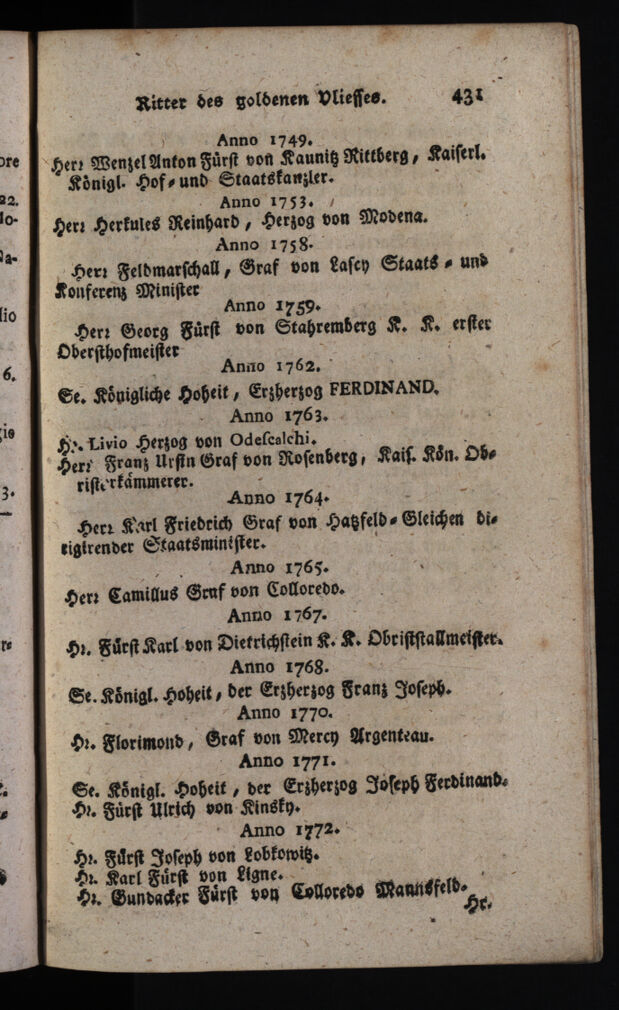 Ritter des goldenen Vliesses. 431
Anno 1749.
Herr Wenzel Anton Fürst von Kaunitz Rittberg, Kaiserl.
Königl. Hof- und Staatskanzler.
Anno 1753.
Herr Herkules Reinhard, Herzog von Modena.
Anno 1758.
Herr Feldmarschall, Graf von Lascy Staats- und
Konferenz Minister
Anno 1759.
Herr Georg Fürst von Stahremberg K. K. erster
Obersthofmeister
Anno 1762.
Se. Königliche Hoheit, Erzherzog FERDINAND.
Anno 1763.
Hr. Livio Herzog von Odescalchi.
Herr Franz Ursin Graf von Rosenberg, Kais. Kön. Ob-
risterkämmerer.
Anno 1764.
Herr Karl Friedrich Graf von Hatzfeld-Gleichen di-
rigirender Staatsminister.
Anno 1765.
Herr Camillus Graf von Colloredo.
Anno 1767.
Hr. Fürst Karl von Dietrichstein K. K. Obriststallmeister.
Anno 1768.
Se. Königl. Hoheit, der Erzherzog Franz Joseph.
Anno 1770.
Hr. Florimond, Graf von Mercy Argenteau.
Anno 1771.
Se. Königl. Hoheit, der Erzherzog Joseph Ferdinand.
Hr. Fürst Ulrich von Kinsky.
Anno 1772.
Hr. Fürst Joseph von Lobkowitz.
Hr. Karl Fürst von Ligne.
Hr. Gundacker Fürst von Colloredo Mannsfeld.
Hr.